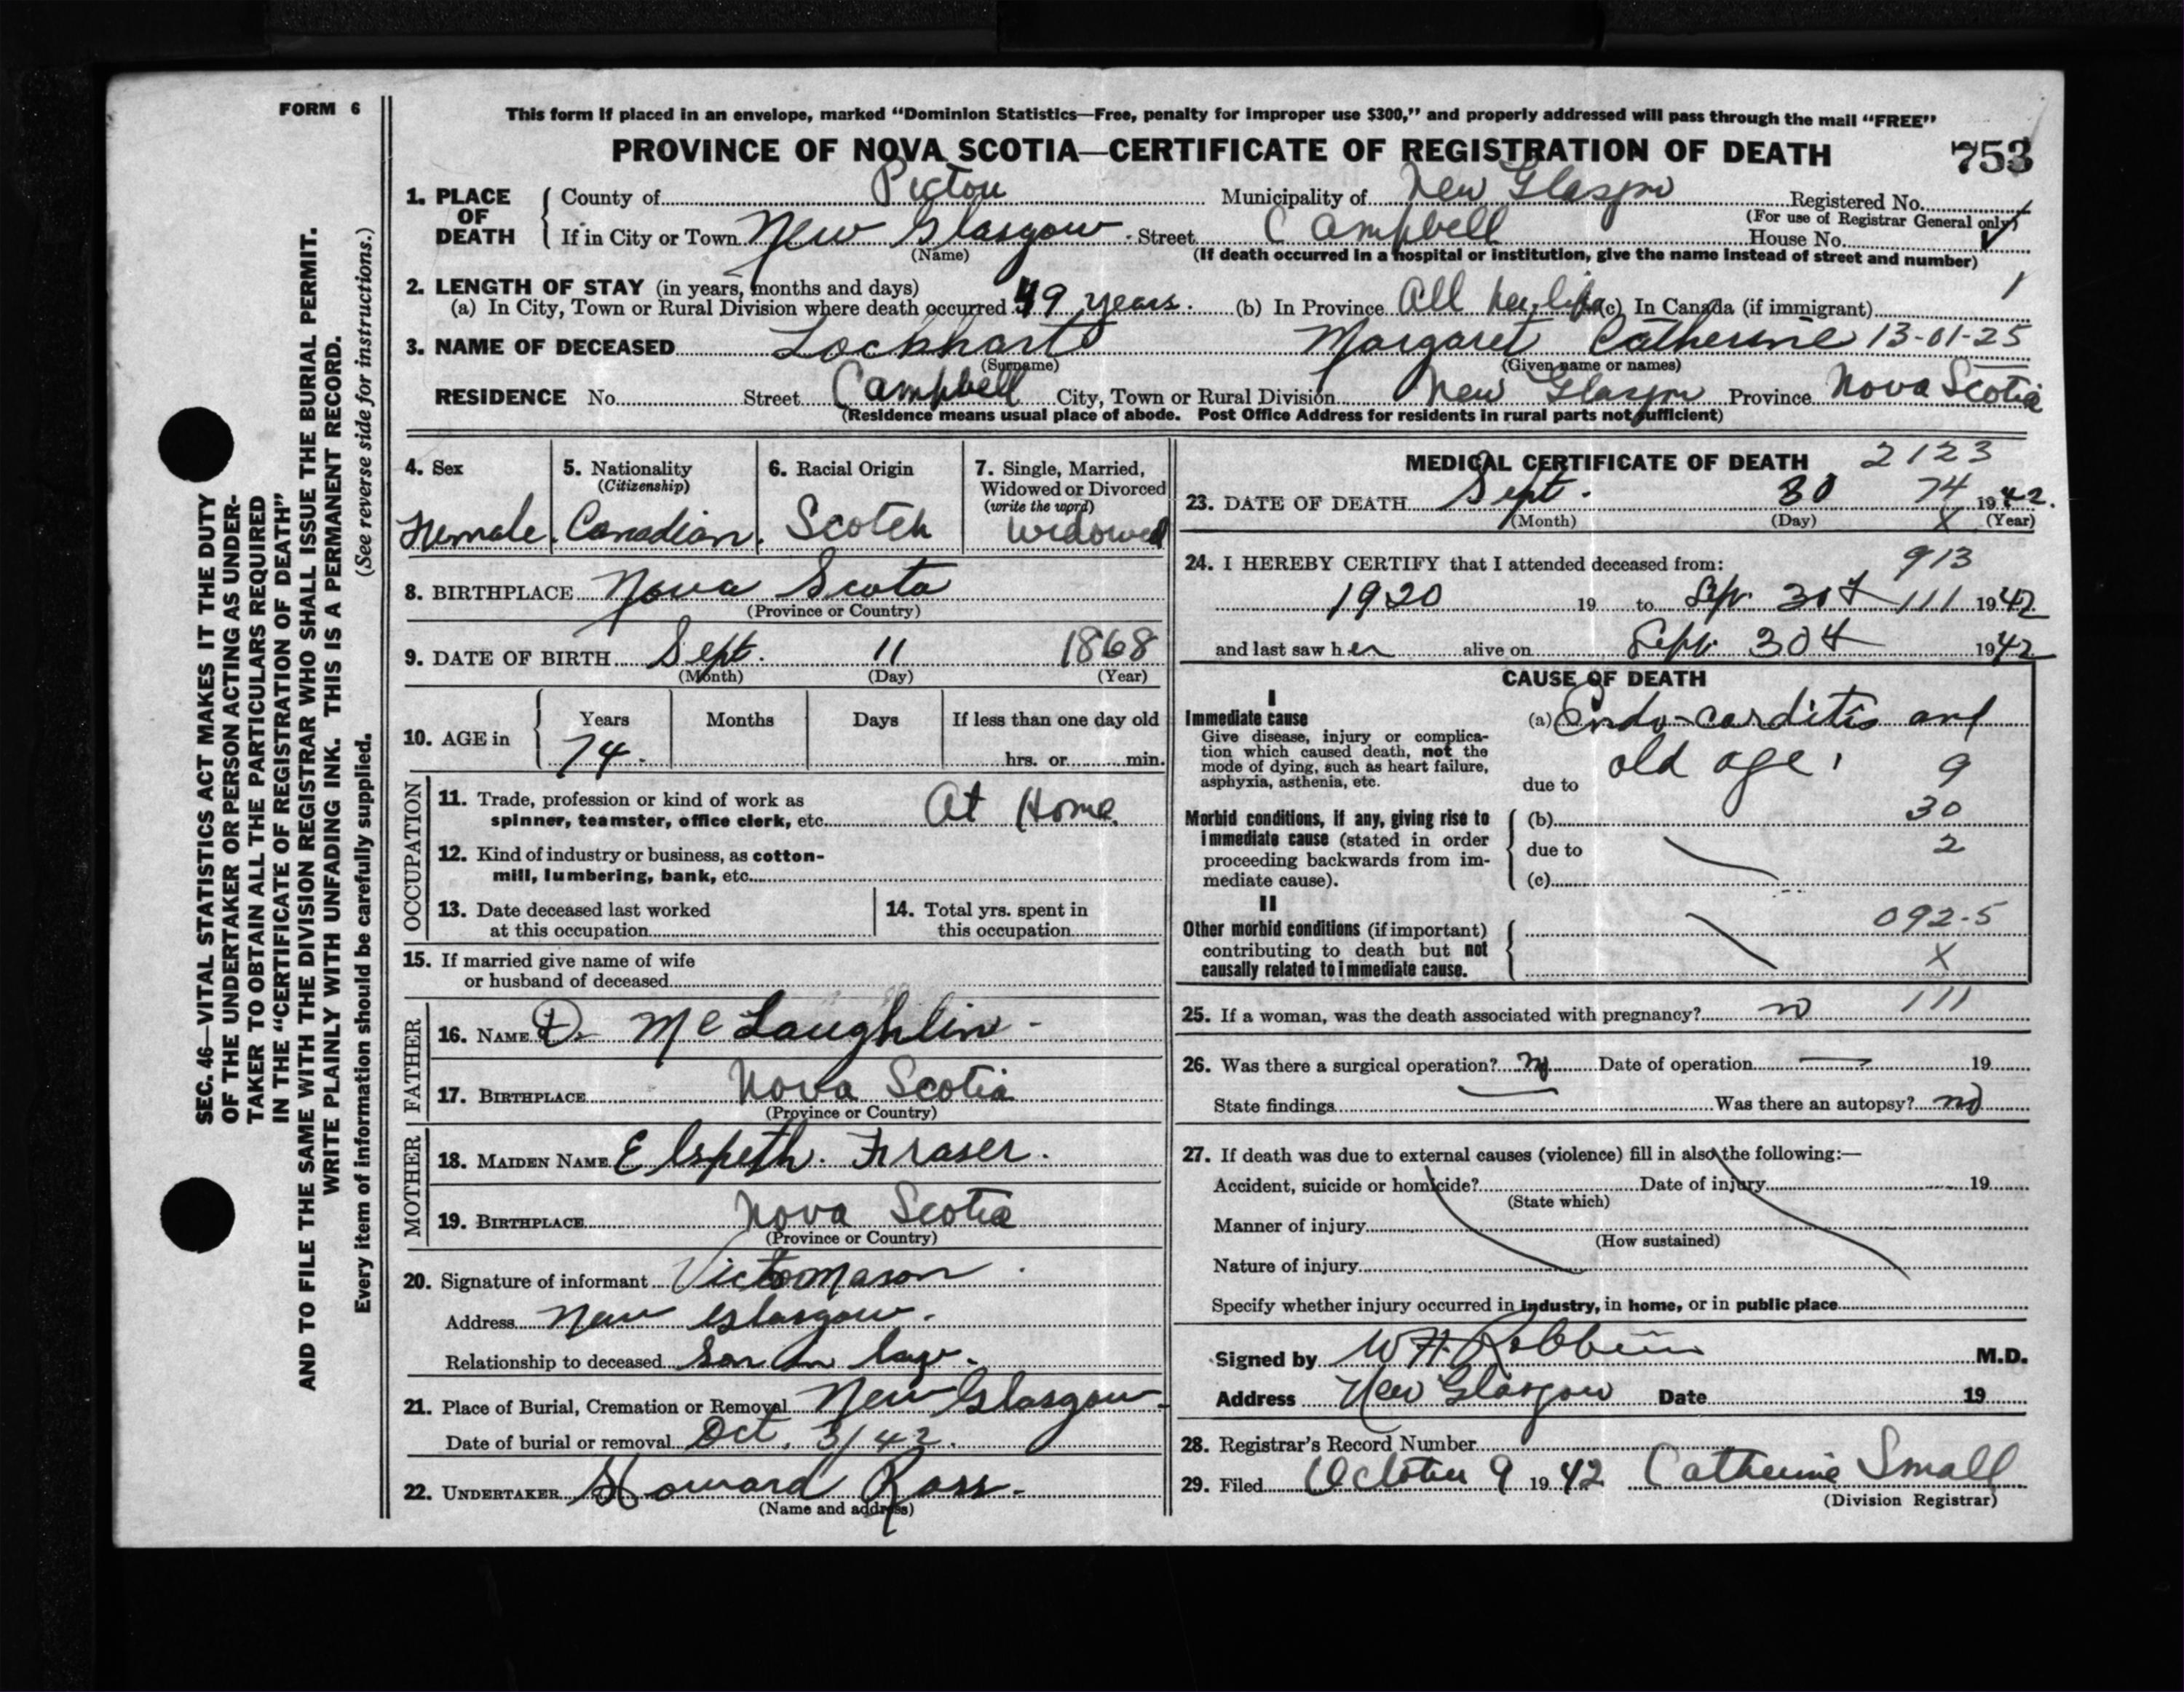 FORM 6
This form if placed in an envelope, marked “Dominion Statistics—Free, penalty for improper use $300,” and properly addressed will pass through the mail “FREE”
PROVINCE OF NOVA SCOTIA—CERTIFICATE OF REGISTRATION OF DEATH 753
1. PLACE OF DEATH County of Pictou Municipality of New Glasgow Registered No.
(For use of Registrar General only)
If in City or Town New Glasgow Street Campbell House No.
(Name) (If death occurred in a hospital or institution, give the name instead of street and number)
2. LENGTH OF STAY (in years, months and days)
(a) In City, Town or Rural Division where death occurred 49 years. (b) In Province All her life (c) In Canada (if immigrant) 1
3. NAME OF DECEASED Lockhart Margaret Catherine 13-01-25
(Surname) (Given name or names)
RESIDENCE No. Street Campbell City, Town or Rural Division New Glasgow Province Nova Scotia
(Residence means usual place of abode. Post Office Address for residents in rural parts not sufficient)
4. Sex
Female.
5. Nationality
(Citizenship)
Canadian.
6. Racial Origin
Scotch
7. Single, Married,
Widowed or Divorced
(write the word)
Widowed
8. BIRTHPLACE Nova Scota
(Province or Country)
9. DATE OF BIRTH Sept. 11 1868
(Month) (Day) (Year)
10. AGE in Years Months Days If less than one day old
74 hrs. or min.
OCCUPATION
11. Trade, profession or kind of work as
spinner, teamster, office clerk, etc. At Home
12. Kind of industry or business, as cotton-
mill, lumbering, bank, etc.
13. Date deceased last worked
at this occupation
14. Total yrs. spent in
this occupation
15. If married give name of wife
or husband of deceased
FATHER
16. NAME D. McLaughlin
17. BIRTHPLACE Nova Scotia
(Province or Country)
MOTHER
18. MAIDEN NAME Elspeth. Fraser.
19. BIRTHPLACE Nova Scotia
(Province or Country)
20. Signature of informant Victor Mason
Address New Glasgow.
Relationship to deceased Son in law.
21. Place of Burial, Cremation or Removal New Glasgow
Date of burial or removal Oct. 3/42.
22. UNDERTAKER Howard Ross.
(Name and address)
MEDICAL CERTIFICATE OF DEATH 2123
23. DATE OF DEATH Sept. 30 74 1942.
(Month) (Day) X (Year)
24. I HEREBY CERTIFY that I attended deceased from: 913
1920 19 to Sep. 30th 111 1942
and last saw her alive on Sept. 30th 1942
CAUSE OF DEATH
I
Immediate cause
Give disease, injury or complica-
tion which caused death, not the
mode of dying, such as heart failure,
asphyxia, asthenia, etc.
(a) Endo-carditis and
old age. 9
due to
Morbid conditions, if any, giving rise to
immediate cause (stated in order
proceeding backwards from im-
mediate cause).
(b) 30
due to 2
(c)
II
Other morbid conditions (if important)
contributing to death but not
causally related to immediate cause.
092-5
X
25. If a woman, was the death associated with pregnancy? no 111
26. Was there a surgical operation? no Date of operation 19
State findings Was there an autopsy? no
27. If death was due to external causes (violence) fill in also the following:—
Accident, suicide or homicide? Date of injury 19
(State which)
Manner of injury
(How sustained)
Nature of injury
Specify whether injury occurred in industry, in home, or in public place
Signed by W H. M.D.
Address New Glasgow Date 19
28. Registrar's Record Number
29. Filed October 9 1942 Catherine Small
(Division Registrar)
SEC. 46—VITAL STATISTICS ACT MAKES IT THE DUTY
OF THE UNDERTAKER OR PERSON ACTING AS UNDER-
TAKER TO OBTAIN ALL THE PARTICULARS REQUIRED
IN THE “CERTIFICATE OF REGISTRATION OF DEATH”
AND TO FILE THE SAME WITH THE DIVISION REGISTRAR WHO SHALL ISSUE THE BURIAL PERMIT.
WRITE PLAINLY WITH UNFADING INK. THIS IS A PERMANENT RECORD.
Every item of information should be carefully supplied. (See reverse side for instructions.)